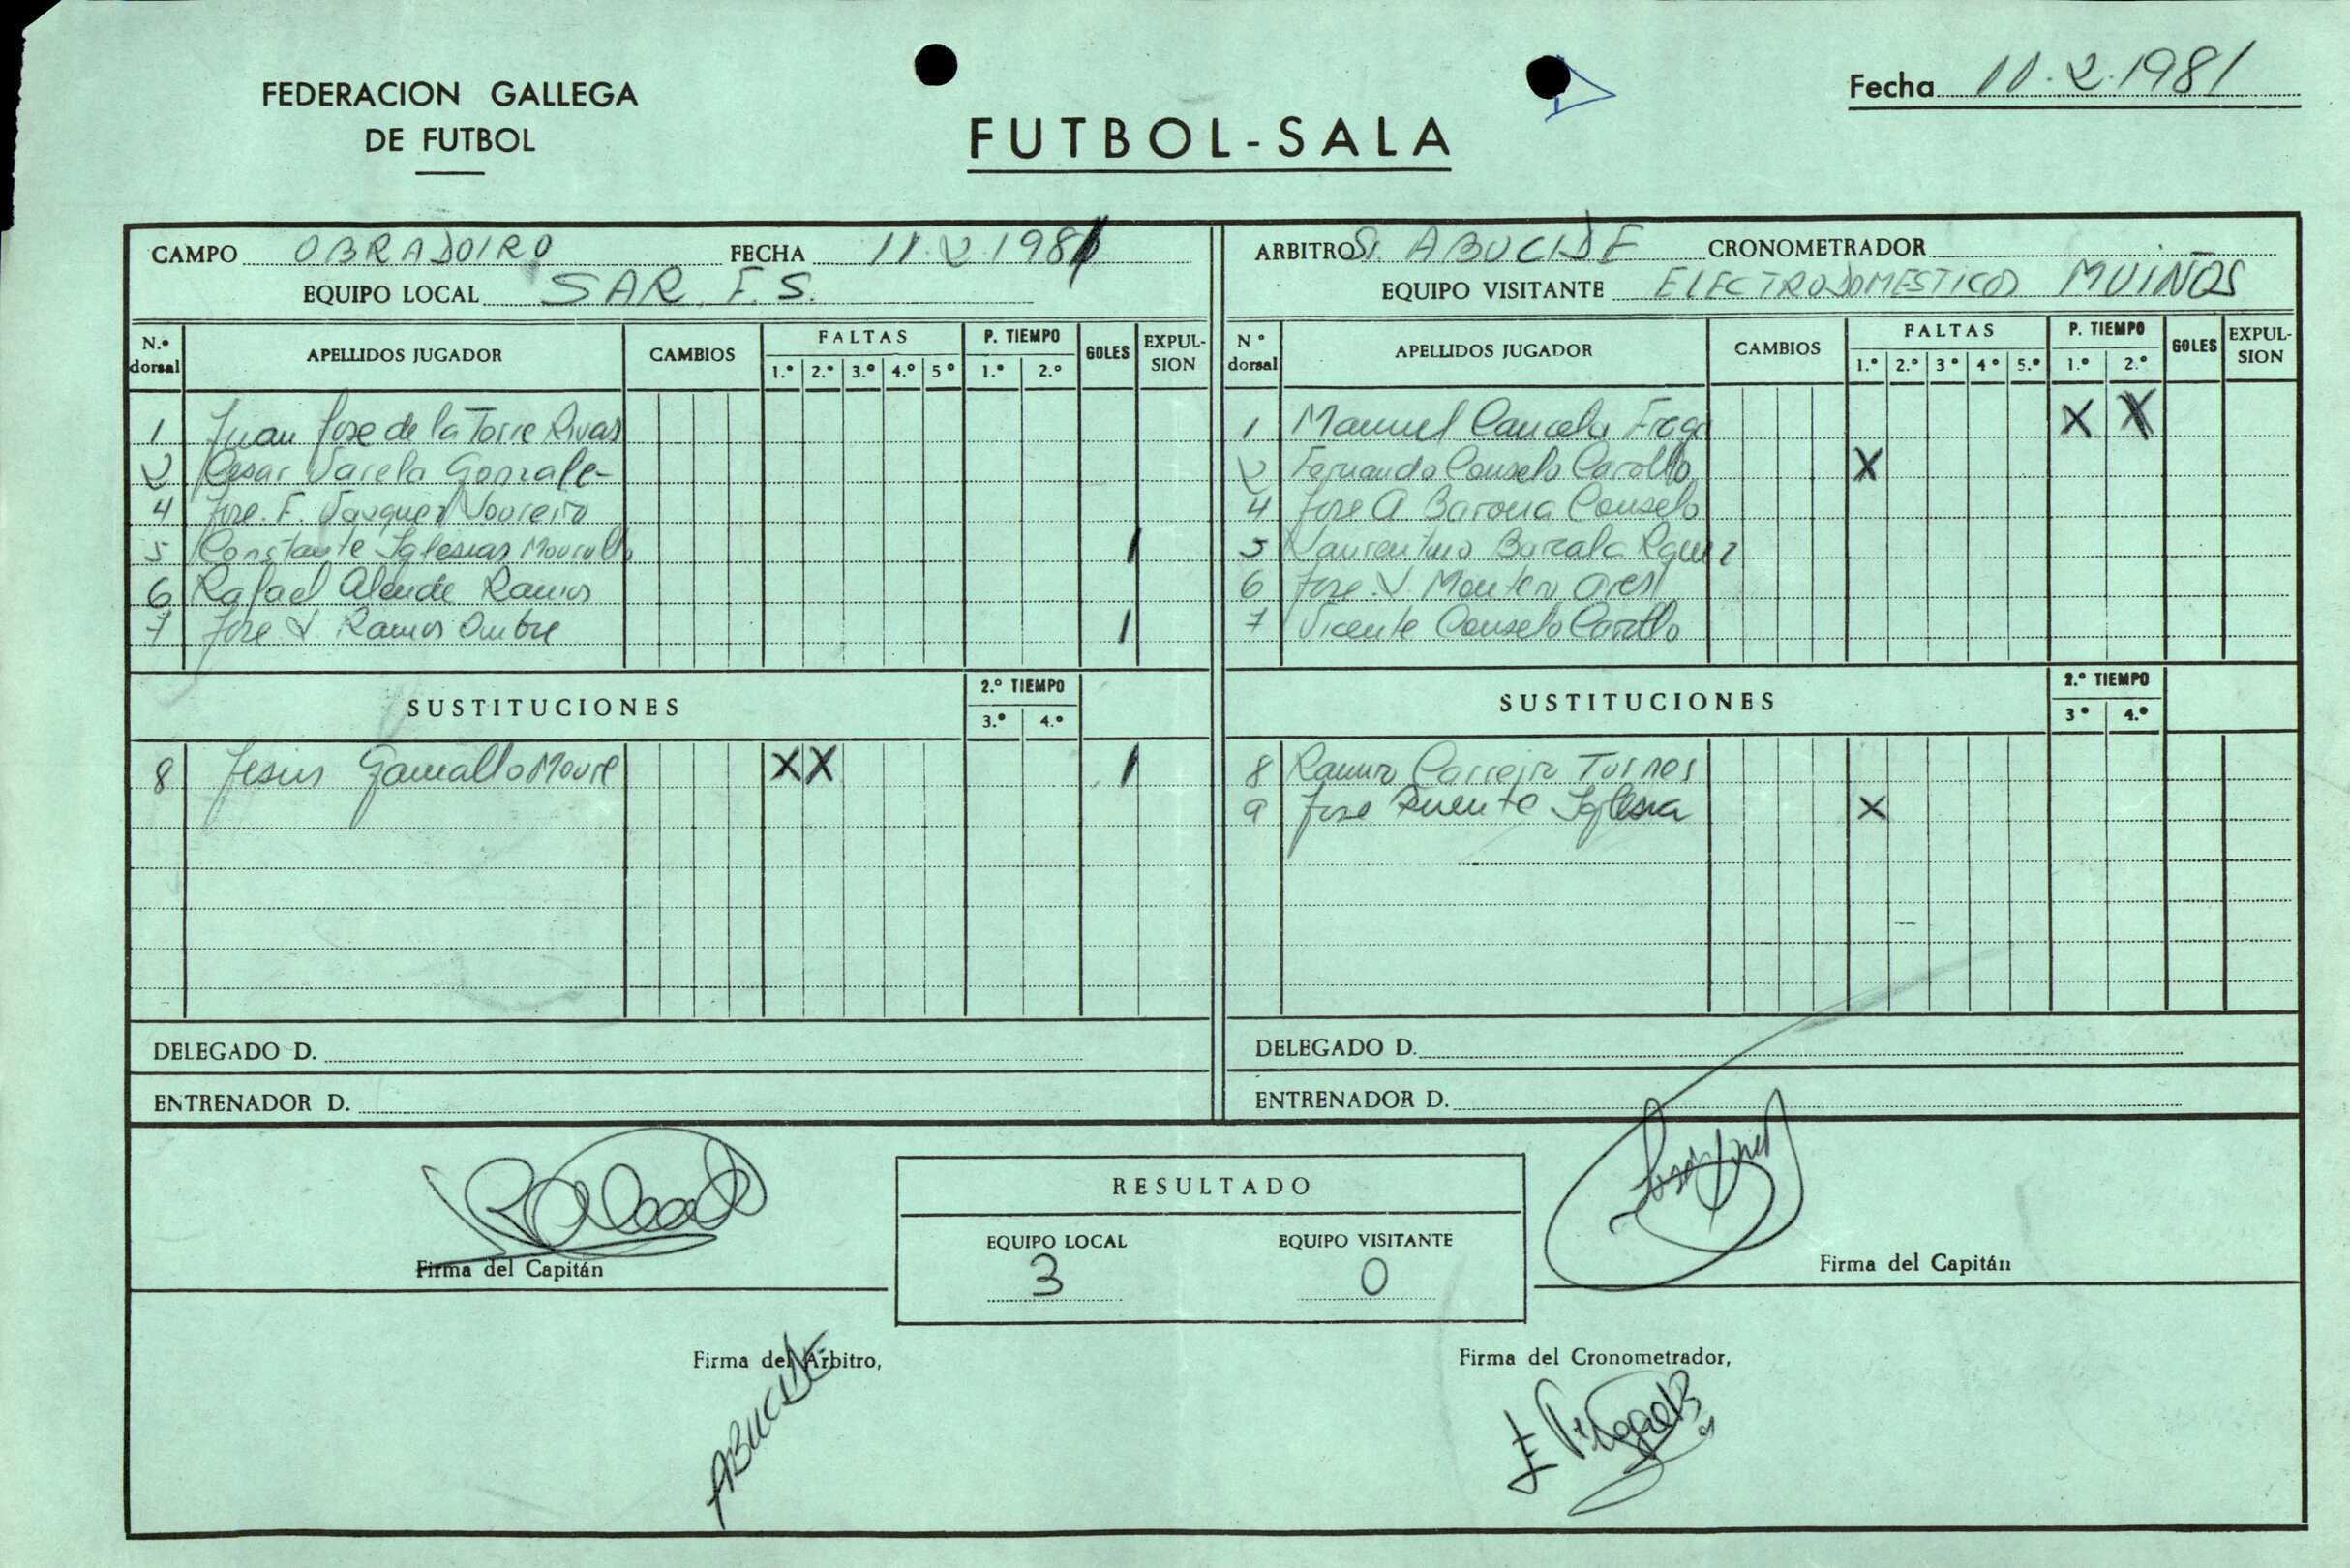 FEDERACION GALLEGA
DE FUTBOL
FUTBOL-SALA
Fecha 11.2.1981
CAMPO OBRADOIRO FECHA 11.2.1981
EQUIPO LOCAL SAR F.S.
N.º dorsal APELLIDOS JUGADOR CAMBIOS FALTAS 1.º 2.º 3.º 4.º 5º P. TIEMPO 1.º 2.º GOLES EXPULSION
1 Juan Jose de la Torre Rivas
2 Cesar Varela Gonzalez
4 Jose F. Vazquez Noureiro
5 Constante Iglesias Mourullo 1
6 Rafael Alende Ramos
7 Jose L Ramos Ombre 1
SUSTITUCIONES 2.º TIEMPO 3.º 4.º
8 Jesus Gamallo Moure X X 1
DELEGADO D.
ENTRENADOR D.
ARBITRO Sr. ABUCIDE CRONOMETRADOR
EQUIPO VISITANTE ELECTRODOMESTICOS MUIÑOS
Nº dorsal APELLIDOS JUGADOR CAMBIOS FALTAS 1.º 2.º 3º 4º 5.º P. TIEMPO 1.º 2.º GOLES EXPULSION
1 Manuel Cancela Fraga X X
2 Fernando Conselo Carollo X
4 Jose A Barona Conselo
5 Laurentino Barzala
6 Jose L. Montero Ares
7 Vicente Conselo Carollo
SUSTITUCIONES 2.º TIEMPO 3º 4.º
8 Ramiro Carreiro Tornes
9 Jose Puente Iglesia X
DELEGADO D.
ENTRENADOR D.
Firma del Capitán
RESULTADO
EQUIPO LOCAL EQUIPO VISITANTE
3 0
Firma del Capitán
Firma del Arbitro,
ABUCIDE
Firma del Cronometrador,